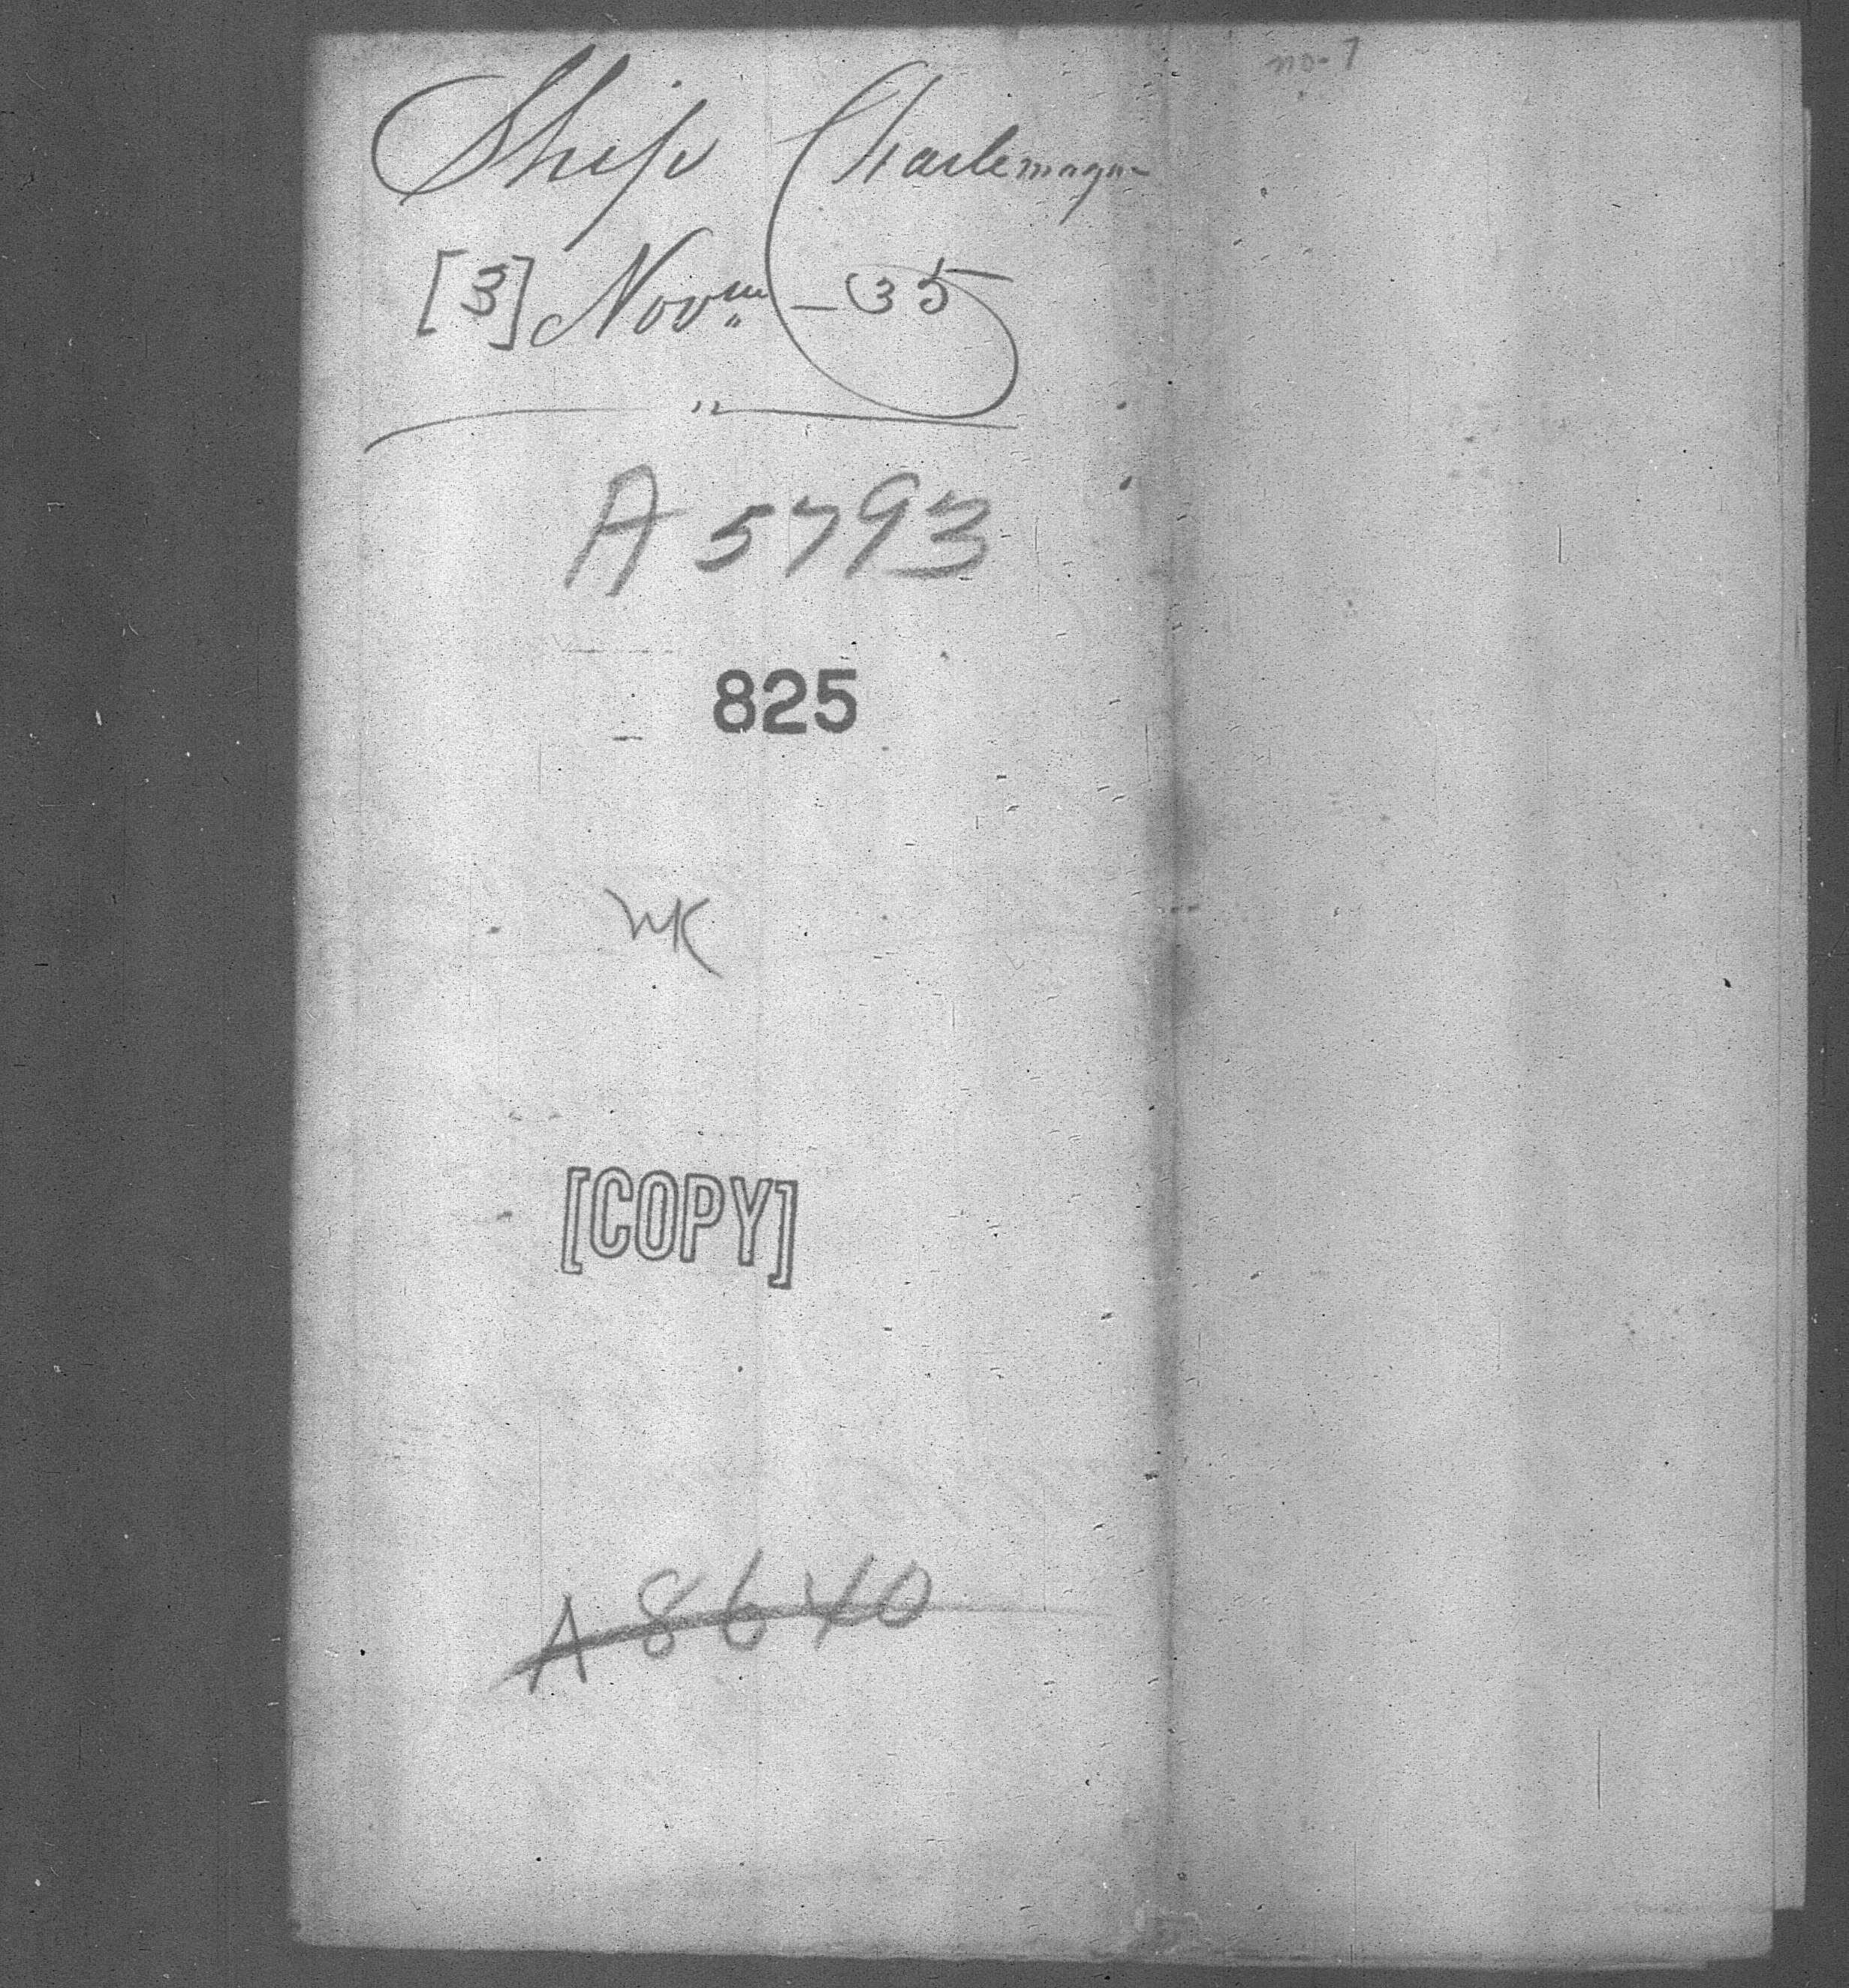 no-7
Ship Charlemagne
[3] Novm - 35
A 5793
825
WK
[COPY]
A 8640